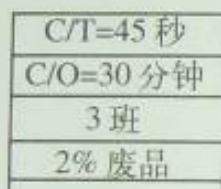 C/T=45 秒
C/O=30 分钟
3 班
2% 废品